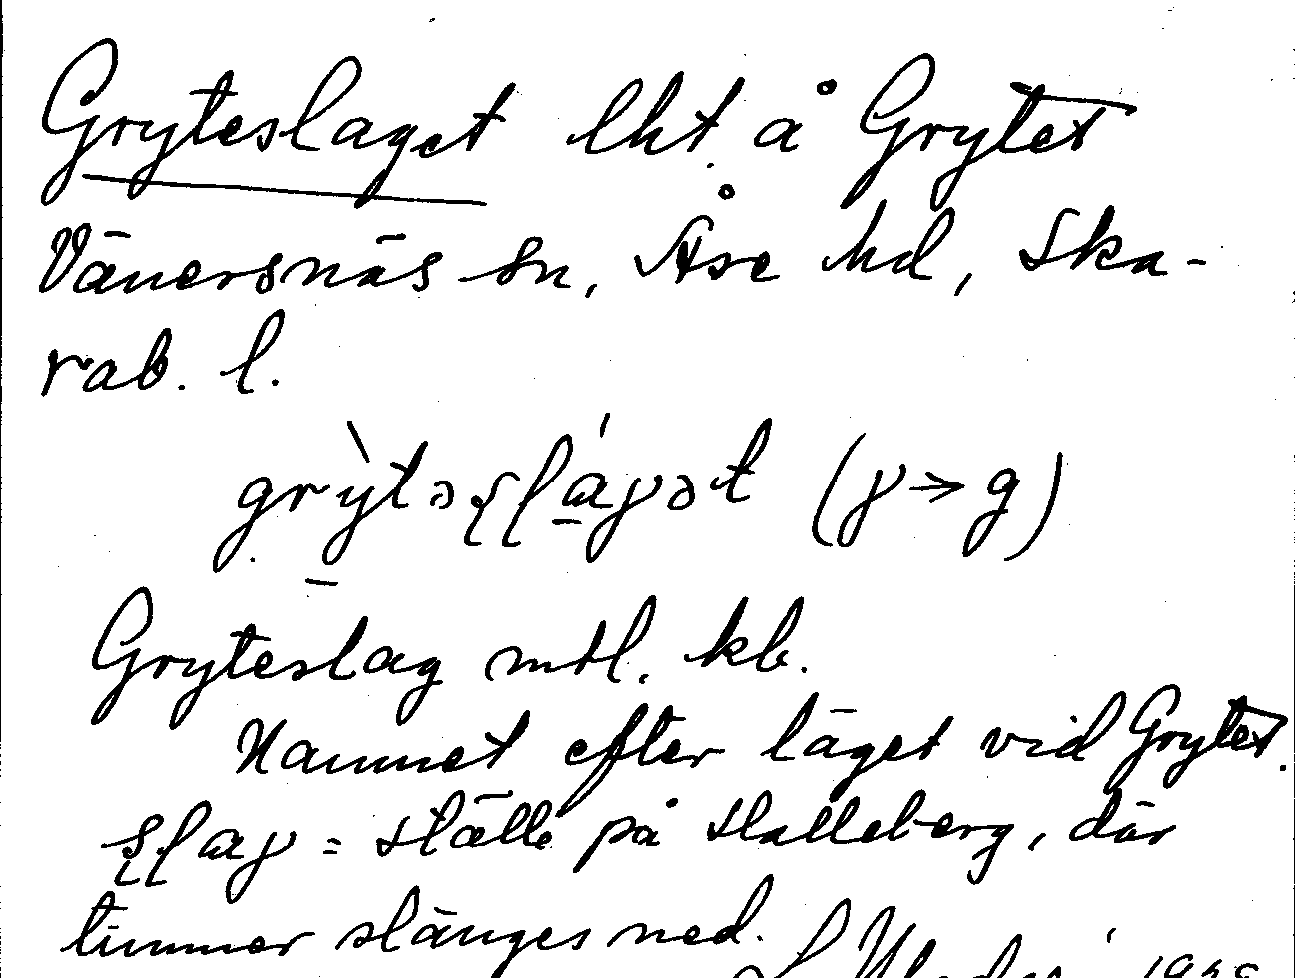 Gryteslaget lht. å Grytet
Vänersnäs sn, Åse hd, Ska-
rab. l.
grỳtəʂɭáγət (γ→g)
Gryteslag mtl. kb.
Namnet efter läget vid Grytet.
ʂɭaγ = ställe på Halleberg, där
timmer slänges ned.